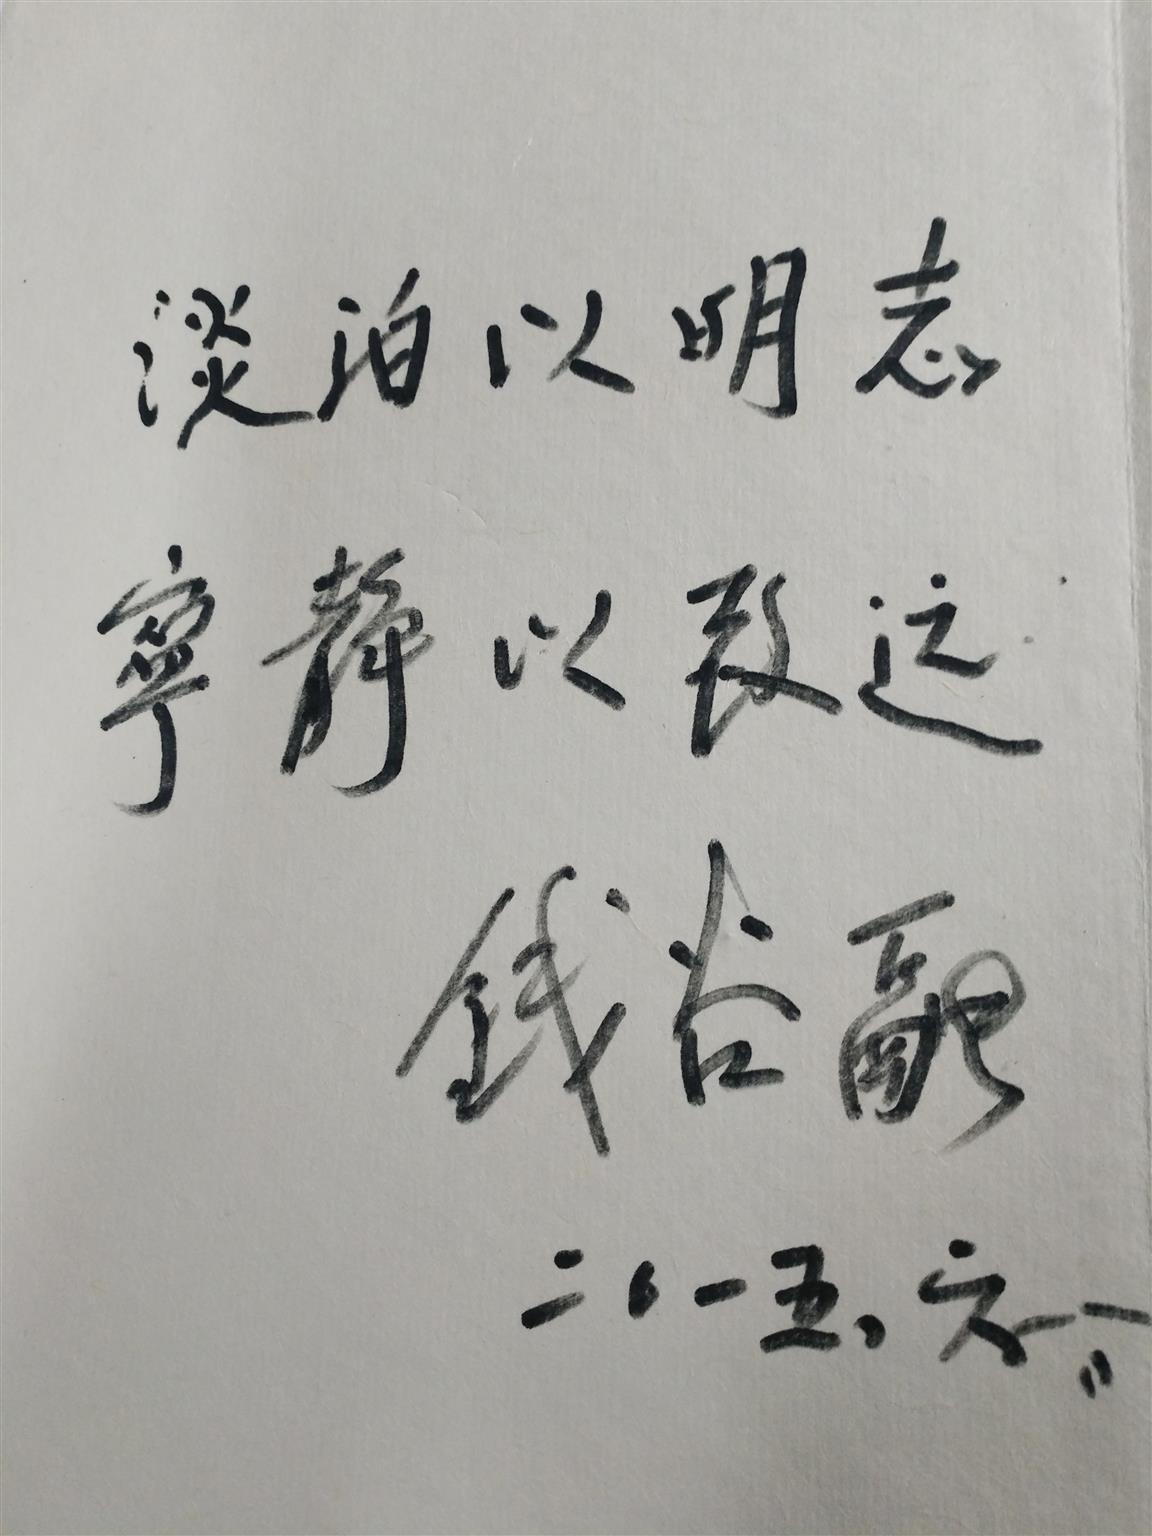 淡泊以明志
寧靜以致远
钱谷融
二〇一五、六、